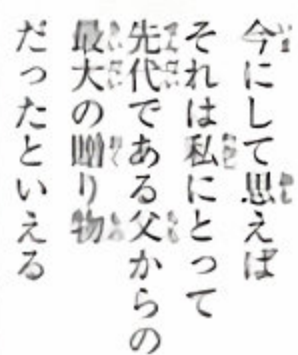 今にして思えば
それは私にとって
先代である父からの
最大の贈り物
だったといえる